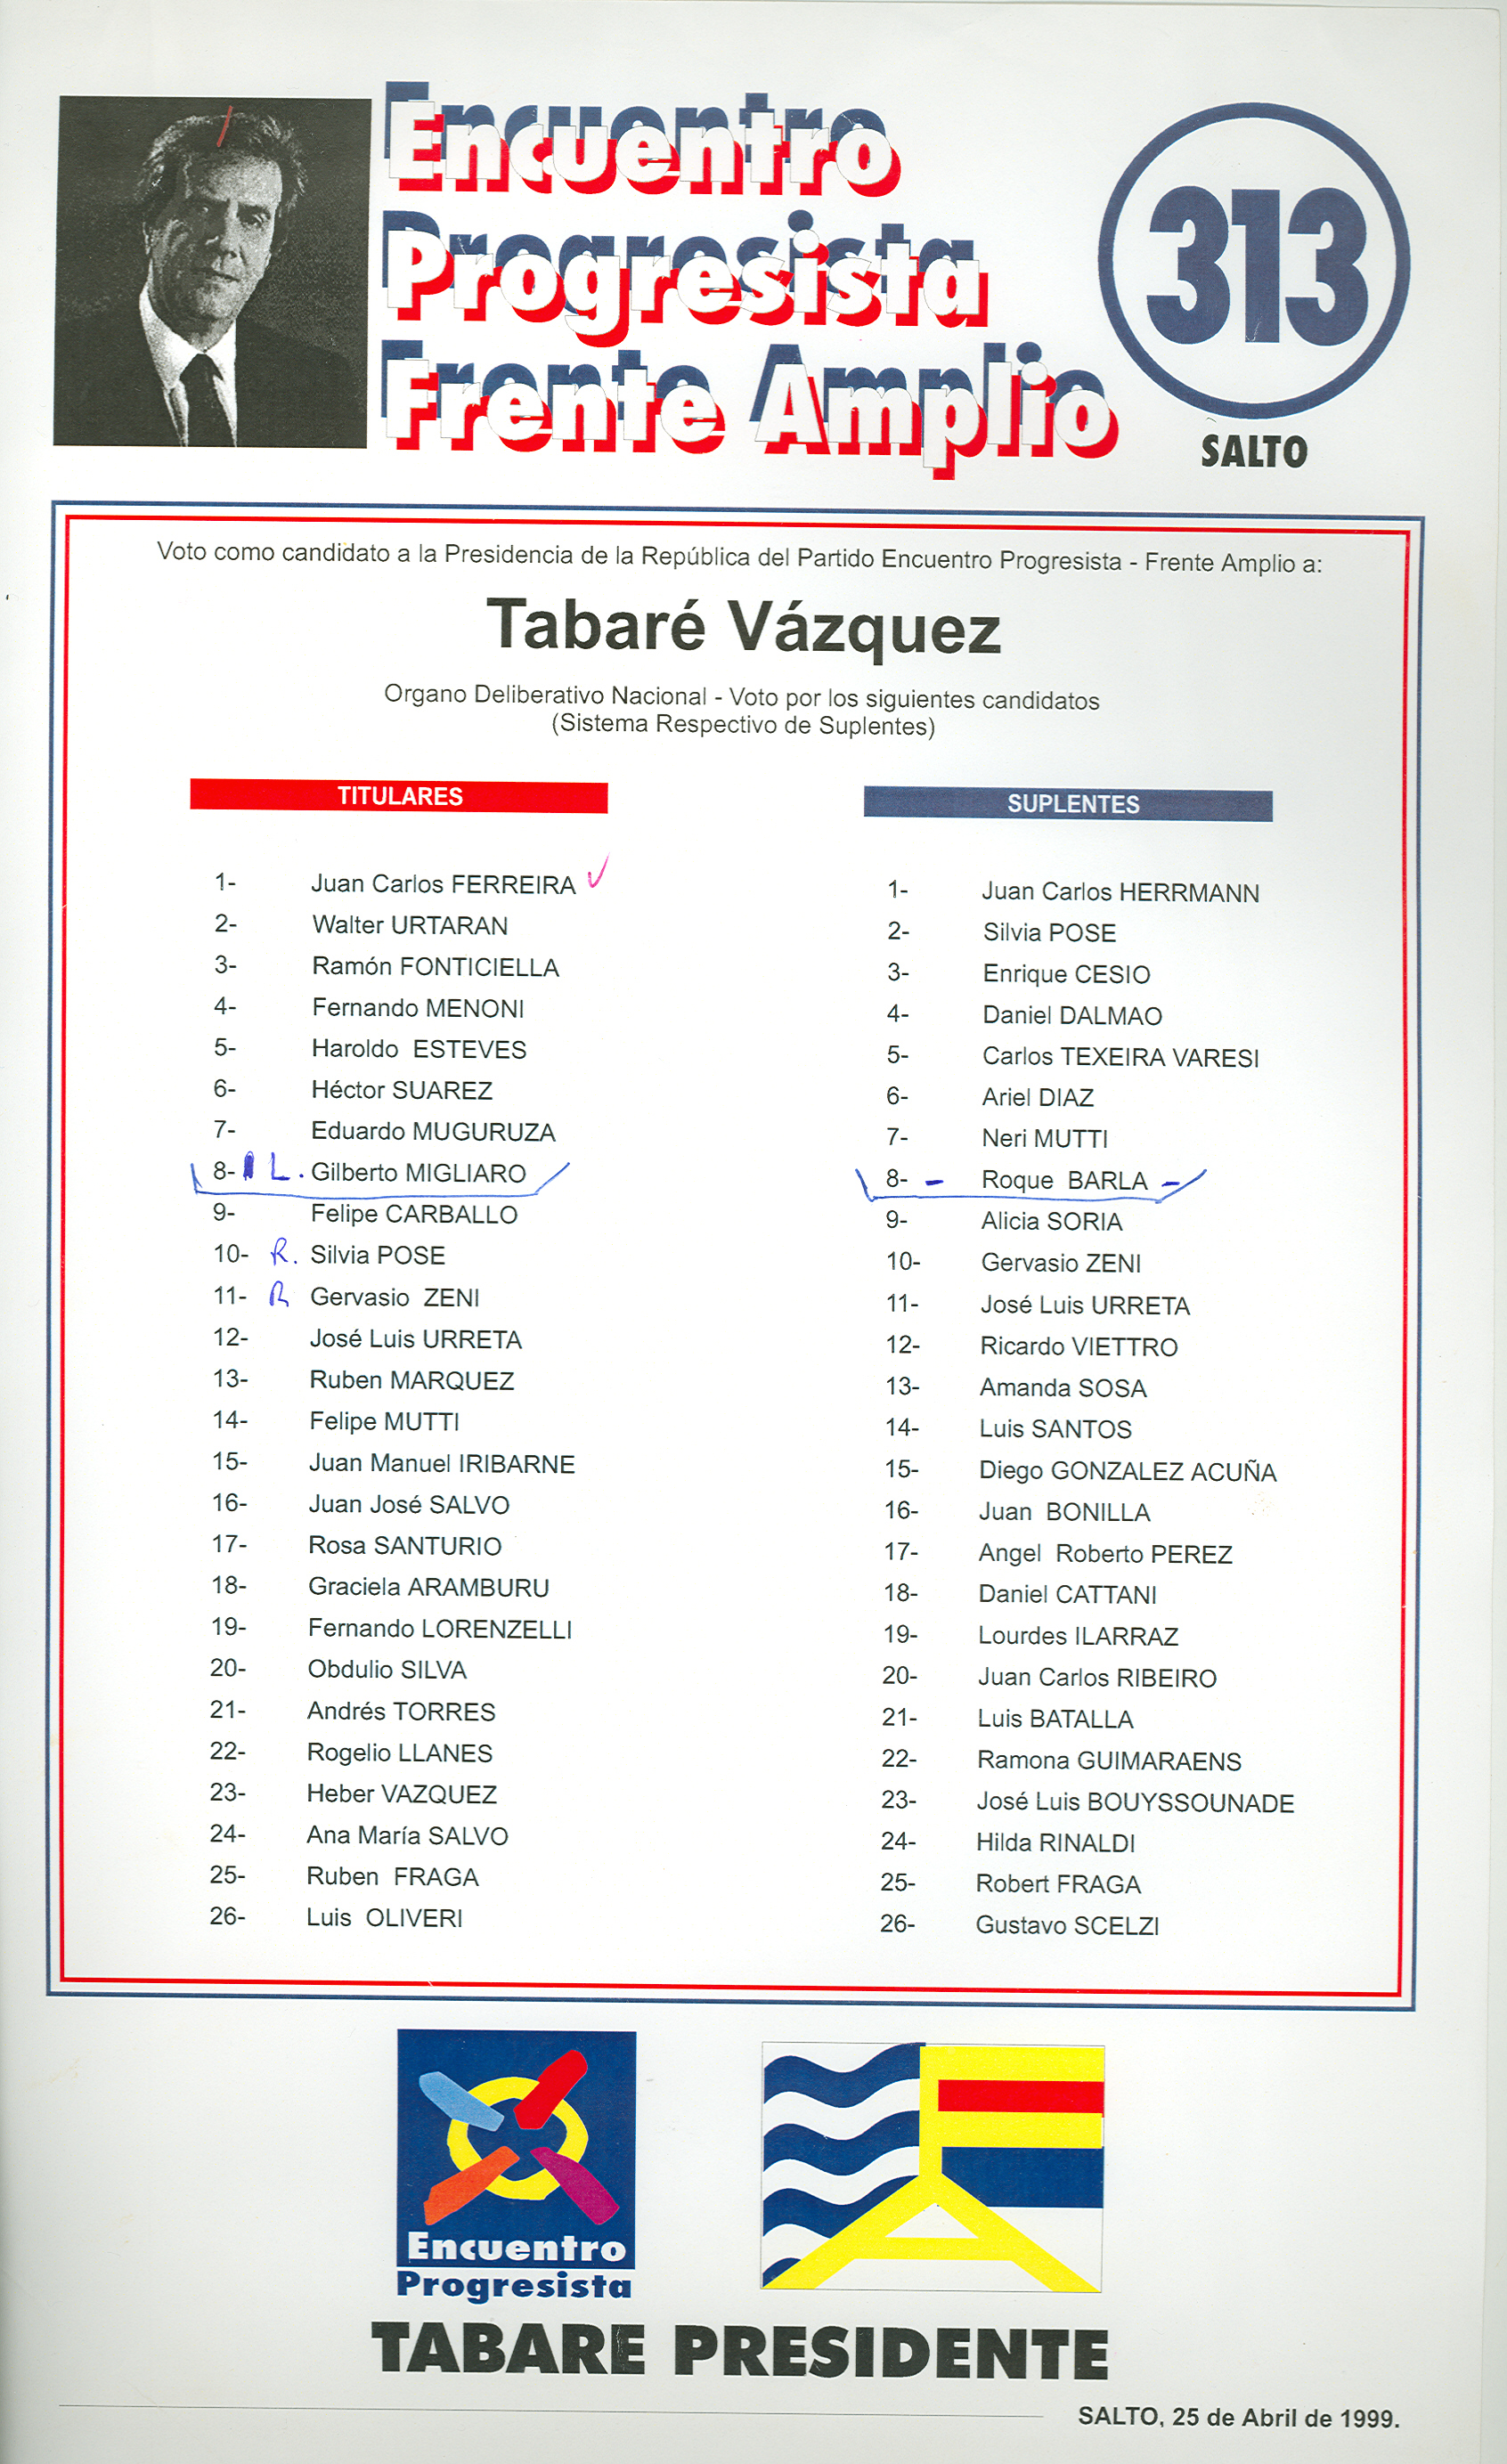 Encuentro
Progresista
Frente Amplio
313
SALTO
Voto como candidato a la Presidencia de la República del Partido Encuentro Progresista - Frente Amplio a:
Tabaré Vázquez
Organo Deliberativo Nacional - Voto por los siguientes candidatos
(Sistema Respectivo de Suplentes)
TITULARES
1- Juan Carlos FERREIRA
2- Walter URTARAN
3- Ramón FONTICIELLA
4- Fernando MENONI
5- Haroldo ESTEVES
6- Héctor SUAREZ
7- Eduardo MUGURUZA
8- L. Gilberto MIGLIARO
9- Felipe CARBALLO
10- R. Silvia POSE
11- R Gervasio ZENI
12- José Luis URRETA
13- Ruben MARQUEZ
14- Felipe MUTTI
15- Juan Manuel IRIBARNE
16- Juan José SALVO
17- Rosa SANTURIO
18- Graciela ARAMBURU
19- Fernando LORENZELLI
20- Obdulio SILVA
21- Andrés TORRES
22- Rogelio LLANES
23- Heber VAZQUEZ
24- Ana María SALVO
25- Ruben FRAGA
26- Luis OLIVERI
SUPLENTES
1- Juan Carlos HERRMANN
2- Silvia POSE
3- Enrique CESIO
4- Daniel DALMAO
5- Carlos TEXEIRA VARESI
6- Ariel DIAZ
7- Neri MUTTI
8- - Roque BARLA -
9- Alicia SORIA
10- Gervasio ZENI
11- José Luis URRETA
12- Ricardo VIETTRO
13- Amanda SOSA
14- Luis SANTOS
15- Diego GONZALEZ ACUÑA
16- Juan BONILLA
17- Angel Roberto PEREZ
18- Daniel CATTANI
19- Lourdes ILARRAZ
20- Juan Carlos RIBEIRO
21- Luis BATALLA
22- Ramona GUIMARAENS
23- José Luis BOUYSSOUNADE
24- Hilda RINALDI
25- Robert FRAGA
26- Gustavo SCELZI
Encuentro
Progresista
FA
TABARE PRESIDENTE
SALTO, 25 de Abril de 1999.